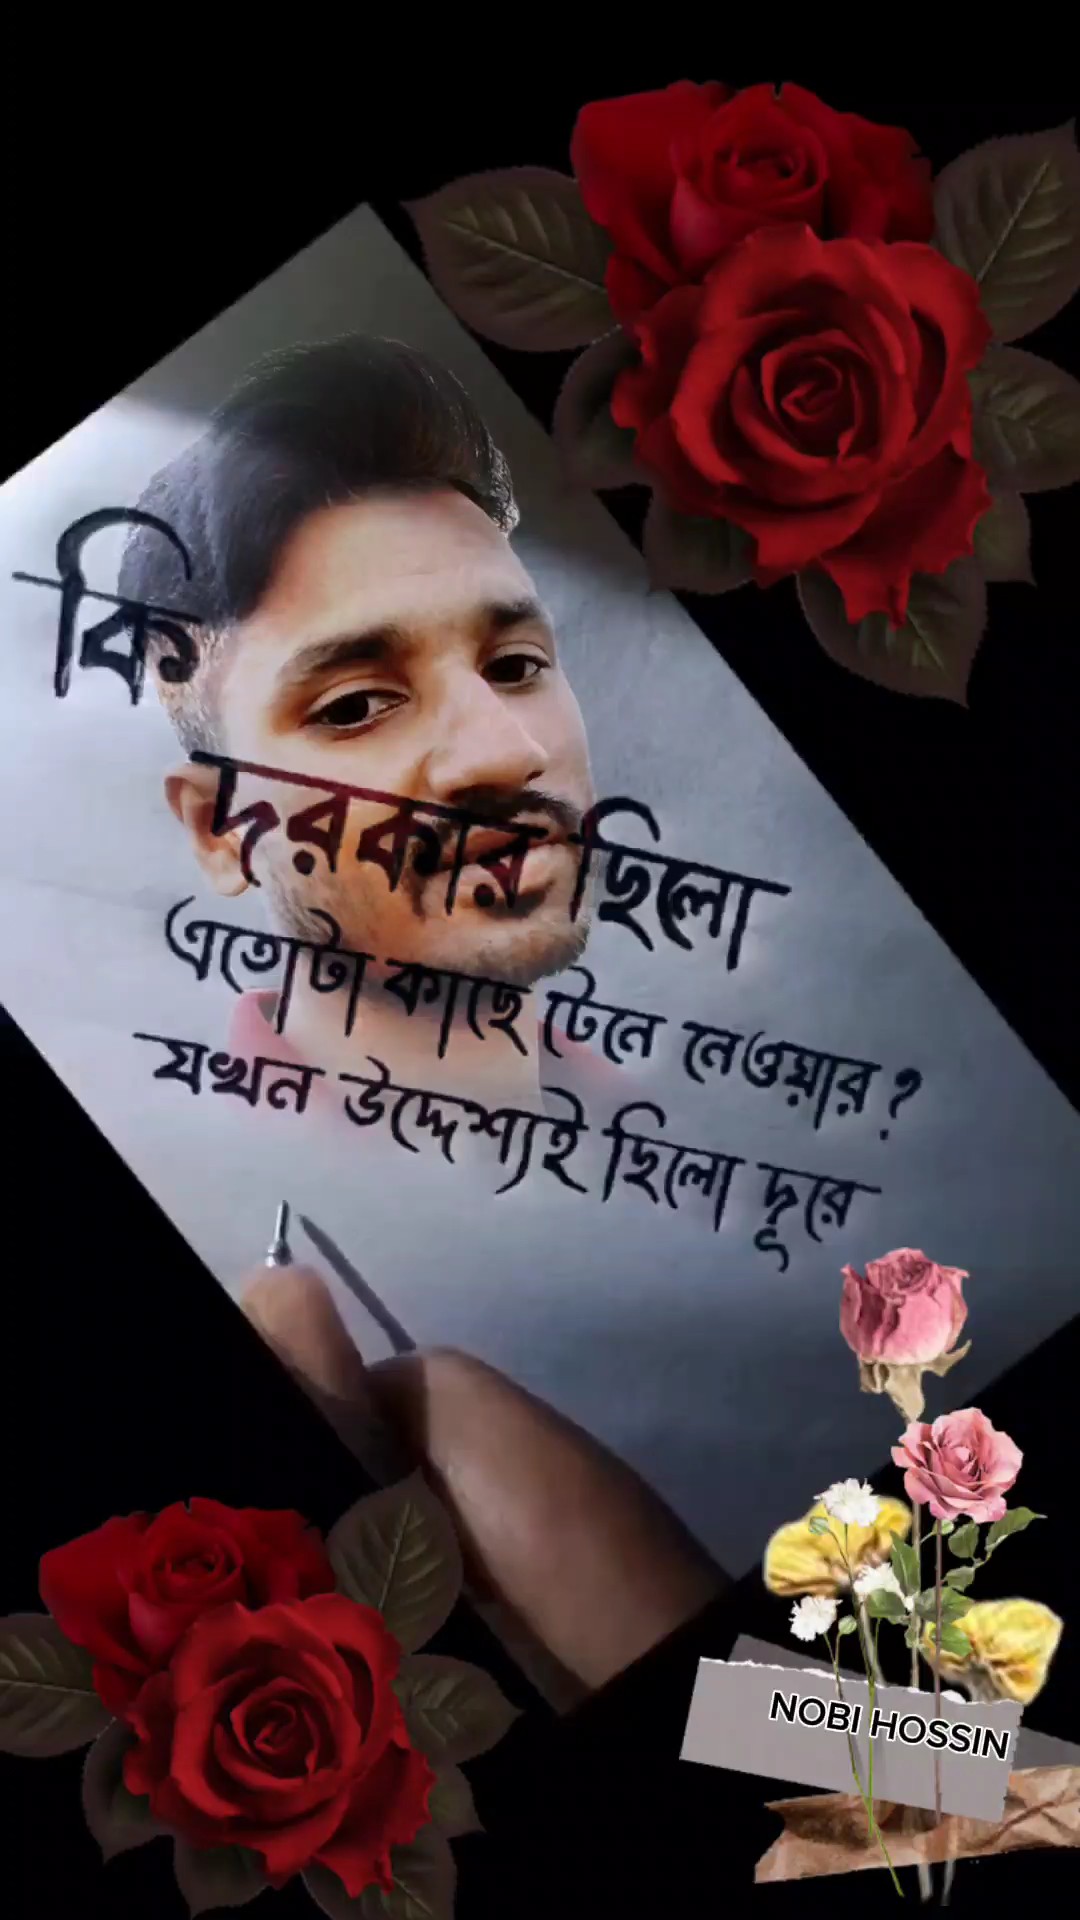 কি
দরকার ছিলো
এতোটা কাছে টেনে নেওয়ার?
যখন উদ্দেশ্যই ছিলো দূরে
NOBI HOSSIN